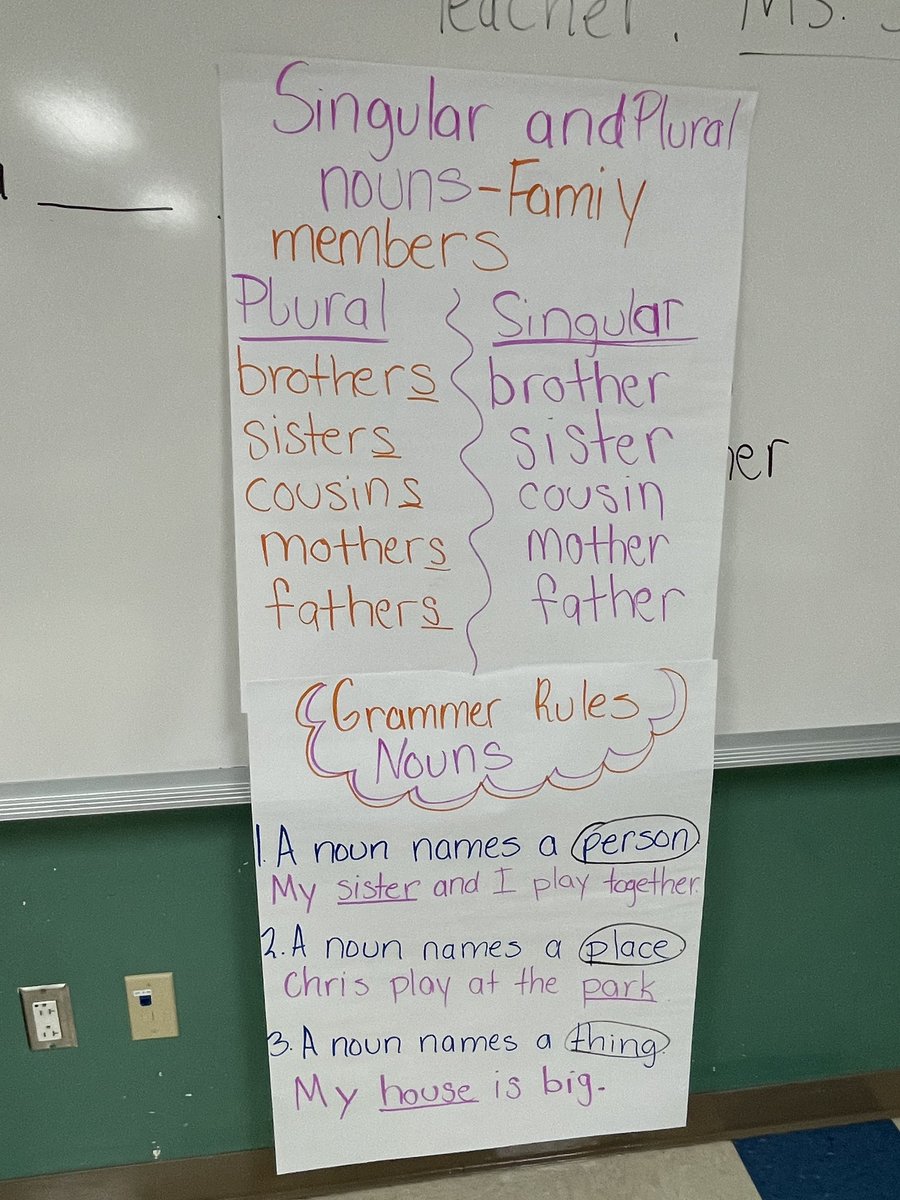 Teacher. Ms.
Singular and Plural
nouns - Famiy
members
Plural Singular
brothers brother
sisters sister
cousins cousin
mothers mother
fathers father
Grammer Rules
Nouns
1. A noun names a person.
My sister and I play together.
2. A noun names a place.
Chris play at the park.
3. A noun names a thing.
My house is big.